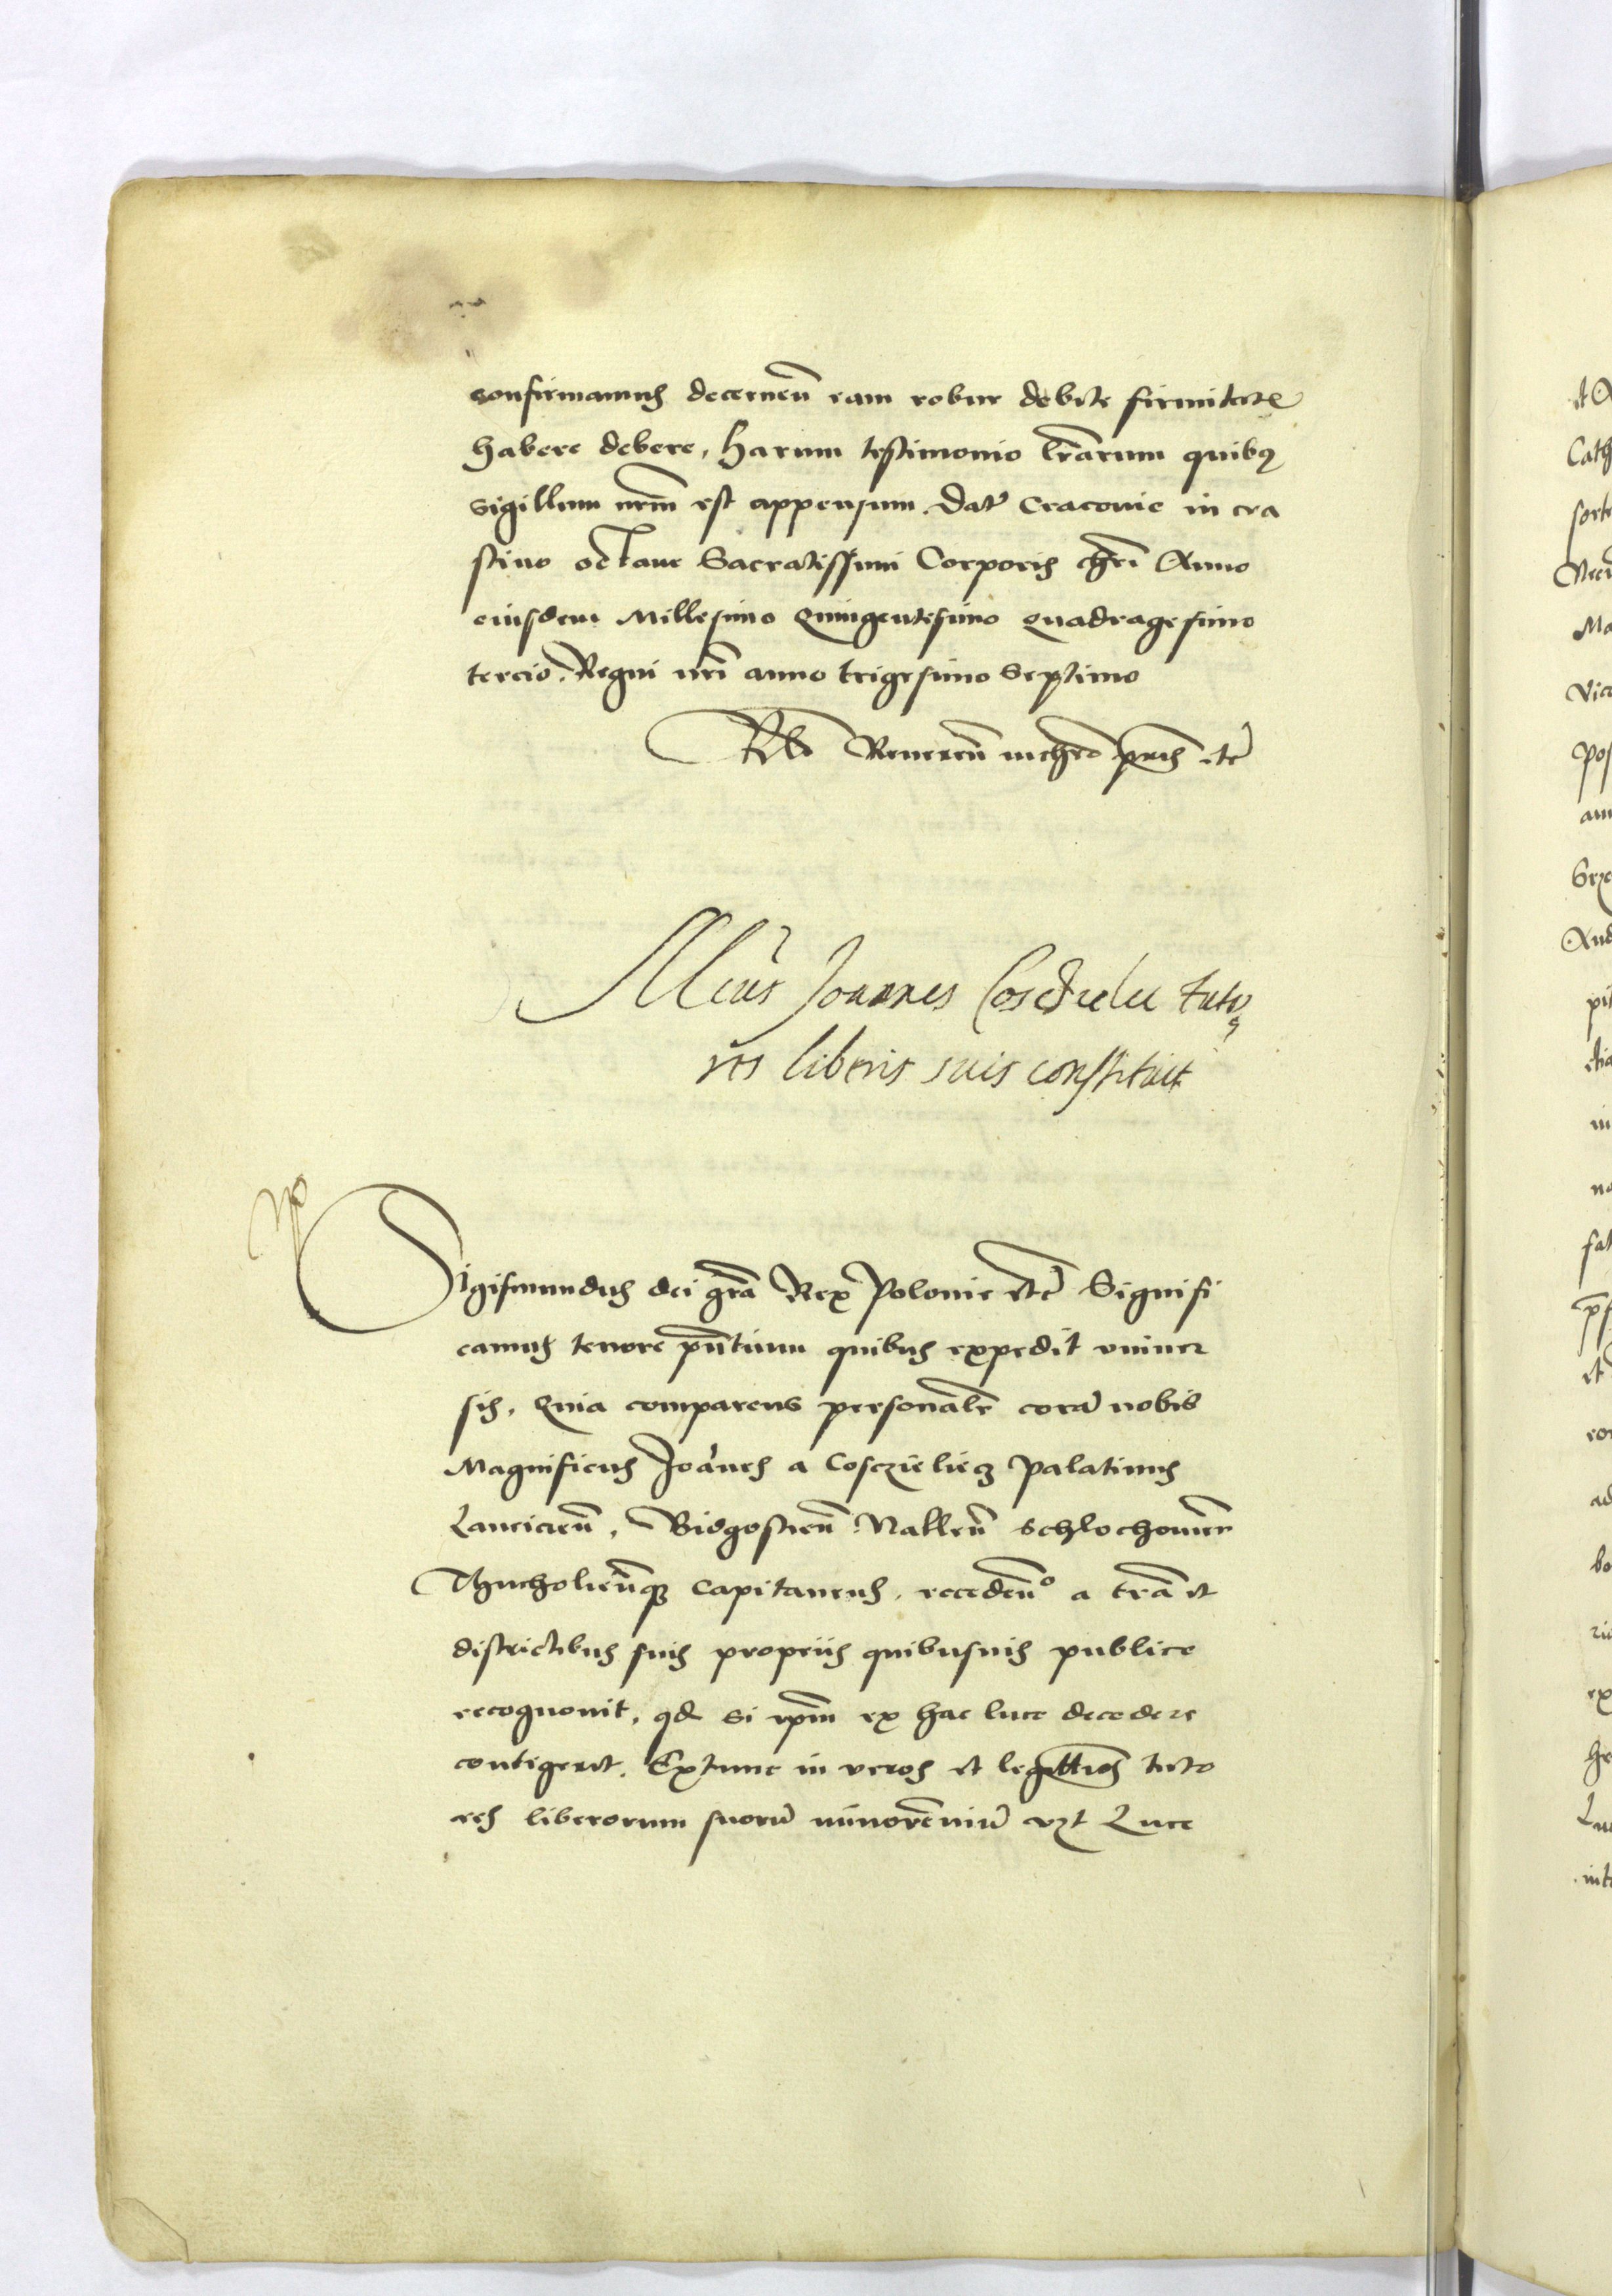 confirmamus decernen̄ eam robur debite firmitatis
habere debere, Harum testimonio lr̄arum quibus
sigillum nr̄m est appensum. Dat̄ Cracovie in cra
stino octave Sacratissimi Corporis chr̄i Anno
eiusdem Millesimo Quingentesimo Quadragesimo
tercio. Regni nr̄i anno trigesimo Septimo
Rlo Reveren̄ in chr̄o pr̄is etc̄
Mcus Joannes Coscielec tuto
res liberis suis constituit
Sigismundus dei gr̄a Rex Polonie etc̄ Signifi
camus tenore pn̄tium quibus expedit univer
sis, Quia comparens personalr̄ corā nobis
Magnificus Joān̄es a Cosczieliecz Palatinus
Lancicien̄, Bidgostien̄ Nallen̄ Schlochovien̄
Thucholien̄que Capitaneus, receden̄º a tr̄a et
districtibus suis propriis quibusuis publice
recognovit, qd si ipm̄ ex hac luce decedere
contigerit, Extunc in veros et legittīos tuto
res liberorum suorū minorēniū vzt Luce